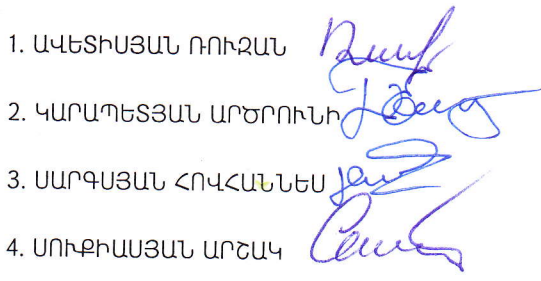 1. ԱՎԵՏԻՍՅԱՆ ՌՈՒԶԱՆ
2. ԿԱՐԱՊԵՏՅԱՆ ԱՐԾՐՈՒՆԻ
3. ՍԱՐԳՍՅԱՆ ՀՈՎՀԱՆՆԵՍ
4. ՍՈՒՔԻԱՍՅԱՆ ԱՐՇԱԿ